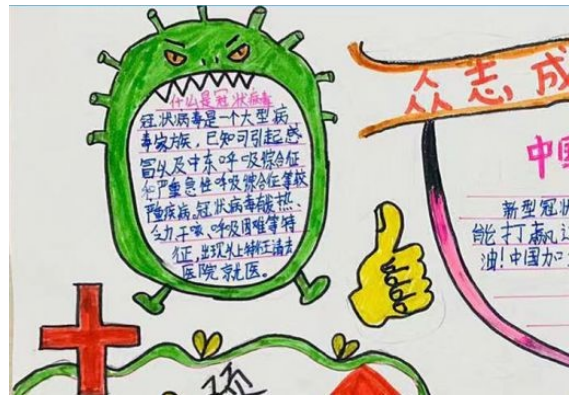 什么是冠状病毒
冠状病毒是一个大型病
毒家族，已知可引起感
冒以及中东呼吸综合征
和严重急性呼吸综合征等较
严重疾病。冠状病毒有发热、
乏力干咳、呼吸困难等特
征，出现以上特征请去
医院就医。
众志成
中国
新型冠状
能打赢这
油！中国加油